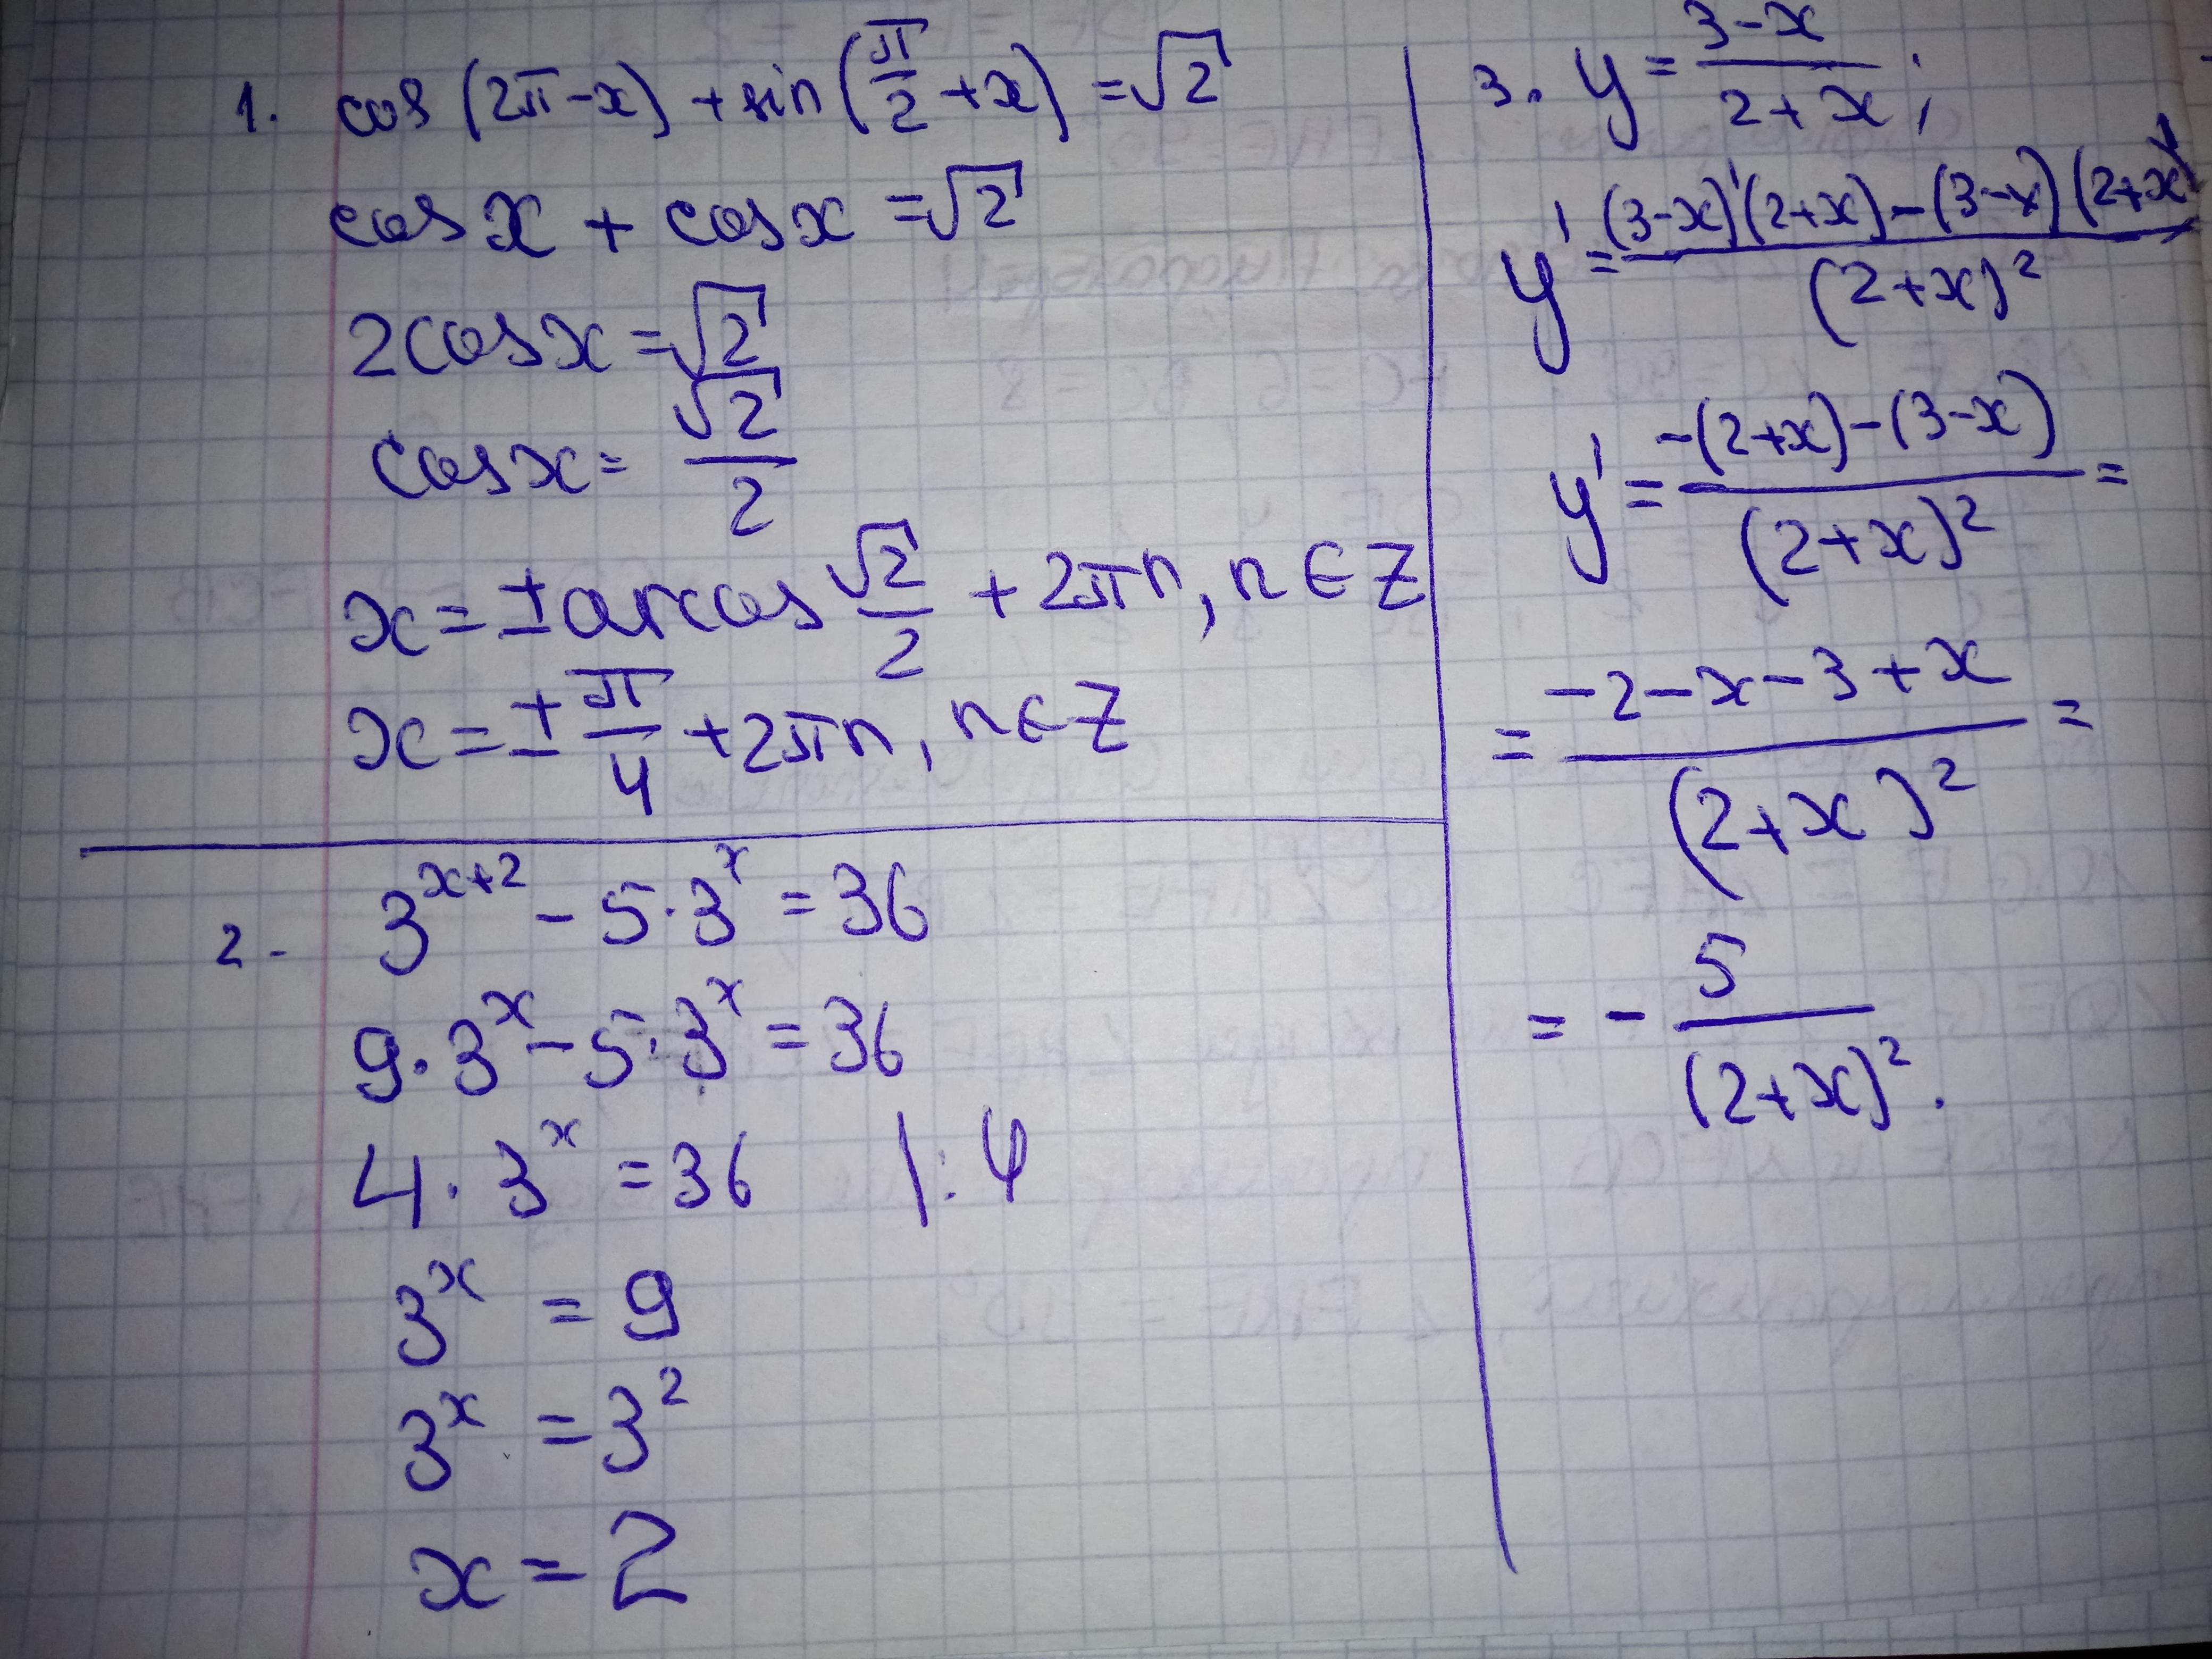 1. cos (2π-x) + sin (π/2 + x) = √2
cos x + cos x = √2
2cos x = √2
cos x = √2/2
x = ± arccos √2/2 + 2πn, n ∈ Z
x = ± π/4 + 2πn, n ∈ Z
2. 3^(x+2) - 5·3^x = 36
9·3^x - 5·3^x = 36
4·3^x = 36 |:4
3^x = 9
3^x = 3^2
x = 2
3. y = (3-x)/(2+x);
y' = ((3-x)'(2+x) - (3-x)(2+x)')/(2+x)^2
y' = (-(2+x) - (3-x))/(2+x)^2 =
= (-2-x-3+x)/(2+x)^2 =
= - 5/(2+x)^2.